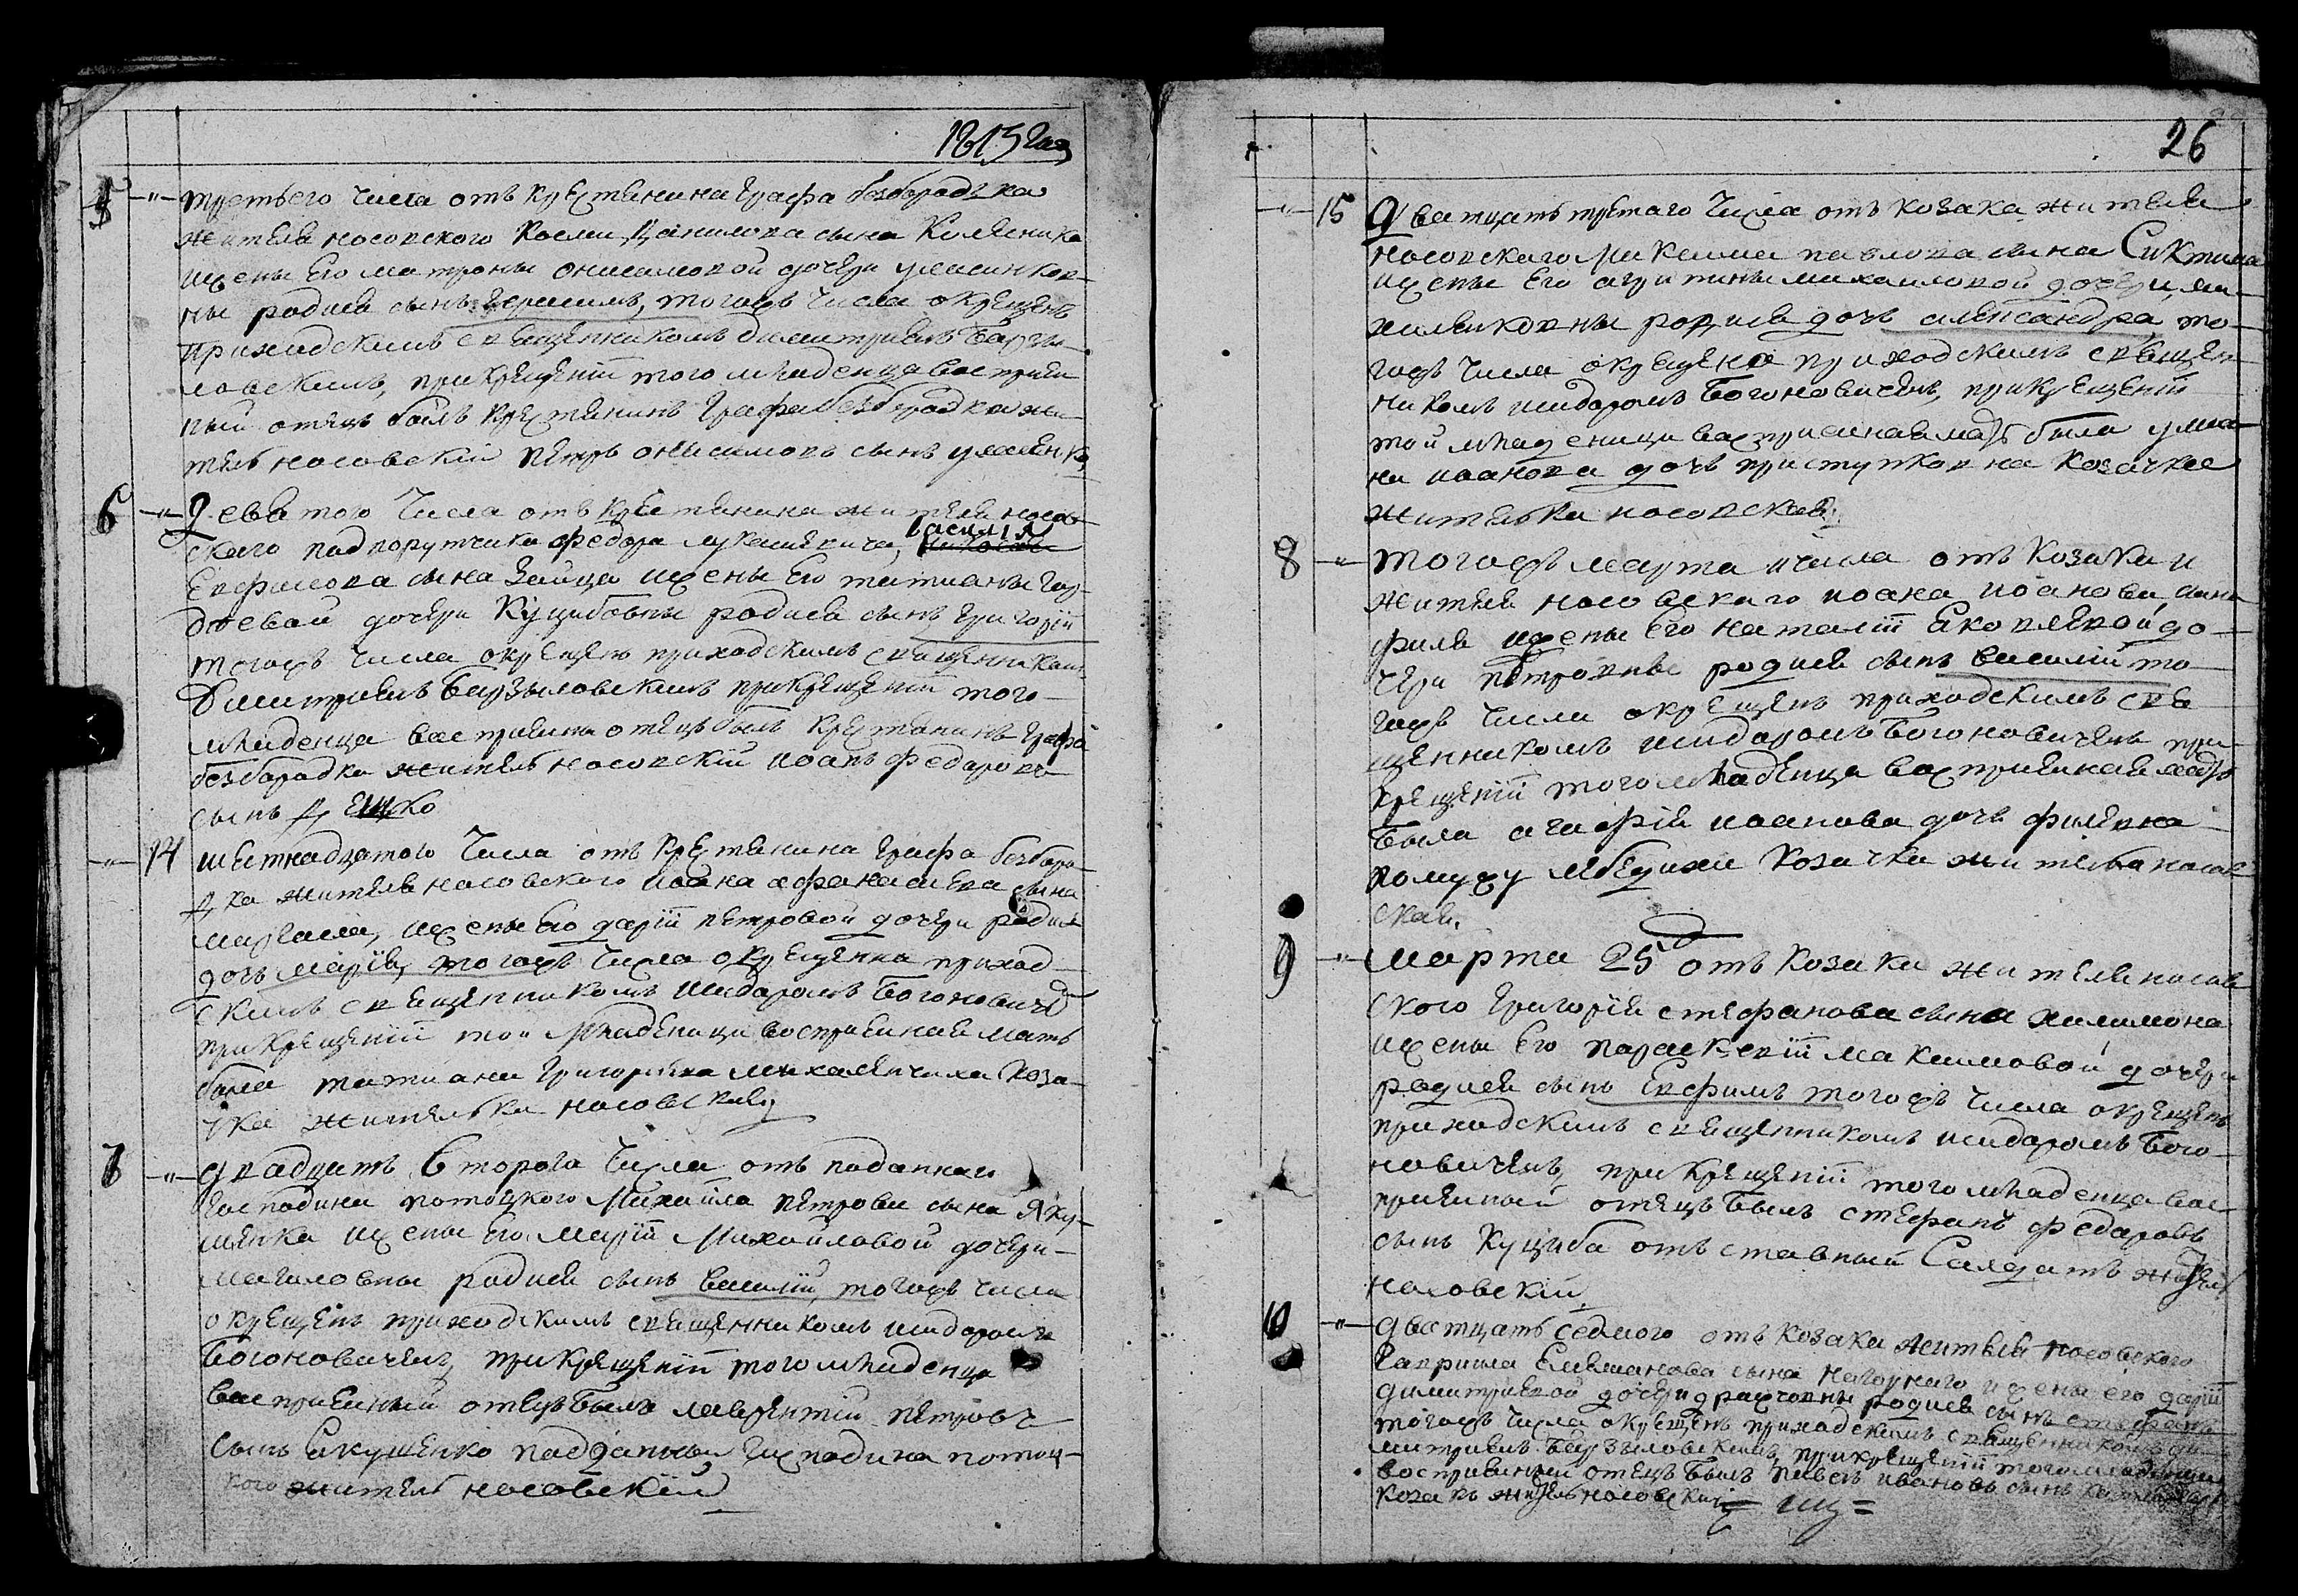 1815 года
5 -"- третьего числа отъ крестянина графа безбородка
жителя носовского Косми Данилова сына Коляника
жены Его матроны онисимовой дочери
ны родися сынъ герасимъ, тогожъ числа окрещенъ
приходскимъ священникомъ димитриемъ Барзы-
ловскимъ, при крещенїи того младенца восприем
ный отецъ былъ крестянинъ графа безбородка жи-
тель носовскїй Петръ онисимовъ сынъ
6 -"- Девятого числа отъ крестянина жителя носов
ского подпорутчика федора лукашевича, василия
Евфимова сына Зайца жены Его татианы гор-
дѣевой дочери Куцибовны родися сынъ григорїй
тогожъ числа окрещенъ приходскимъ священникомъ
Димитриемъ Барзыловскимъ при крещенїи того
младенца восприемны отецъ былъ крестянинъ графа
безбородка житель носовскїй иоанъ федоровъ
сынъ
-"- 14 шестнадцатого числа отъ крестянина графа безборо
дка жителя носовского иоана афанасиева сына
жены Его дарїи петровой дочери родися
дочь марїя, тогожъ числа окрещенна приход-
скимъ священникомъ исидоромъ Богоновичемъ
при крещенїи той младеници восприемная мать
была татиана григориева михаленчиха коза-
чка жителька носовская
7 -"- двадцать второго числа отъ подданнаго
господина потоцкого Михаила петрова сына Яку-
шенка жены Его Марїи Михайловой дочери
магиловны родися сынъ василїй, тогожъ числа
окрещенъ приходскимъ священникомъ исидоромъ
Богоновичемъ, при крещенїи того младенца
восприемный отецъ былъ лаврентїй петровъ
сынъ Якушенко подданный господина потоц-
кого житель носовскїй
26
-"- 15 Дватцать третаго числа отъ козака жителя
носовскаго Максима павлова сына
жены Его агрипины михаиловой дочери,
родися дочь александра то-
гожъ числа окрещена приходскимъ священ
никомъ исидоромъ Богоновичемъ, при крещенїи
той младеници восприемная мать была улия-
на иоанова дочь приступковна козачка
жителька носовская
8 -"- тогожъ марта числа отъ козака и
жителя носовскаго иоана иоанова сына
филя жены Его наталїи Яковлевой до-
чери петровны родися сынъ василїй то-
гожъ числа окрещенъ приходскимъ свя
щенникомъ исидоромъ Богоновичемъ при
крещенїи того младенца восприемная мать
была агафїя иоанова дочь филевна
по мужу лебедиха козачка жителька носов
ская.
9 -"- марта 25 отъ козака жителя носов
ского григорїя стефанова сына халимона
жены Его параскевїи максимовой дочери
родися сынъ Евфимъ тогожъ числа окрещенъ
приходскимъ священникомъ исидоромъ Бого-
новичемъ, при крещенїи того младенца вос-
приемный отецъ былъ стефанъ федоровъ
сынъ Куциба отъ ставный Салдатъ житель
носовскїй
10 -"- дватцать седмого отъ козака жителя носовского
гавриила Емелианова сына нагорнаго жены его дарїи
димитриевой дочери родися сынъ стефанъ
тогожъ числа окрещенъ приходскимъ священникомъ ди-
митриемъ Барзыловскимъ, при крещенїи того младенца
восприемный отецъ былъ павелъ ивановъ сынъ
козакъ житель носовскїй